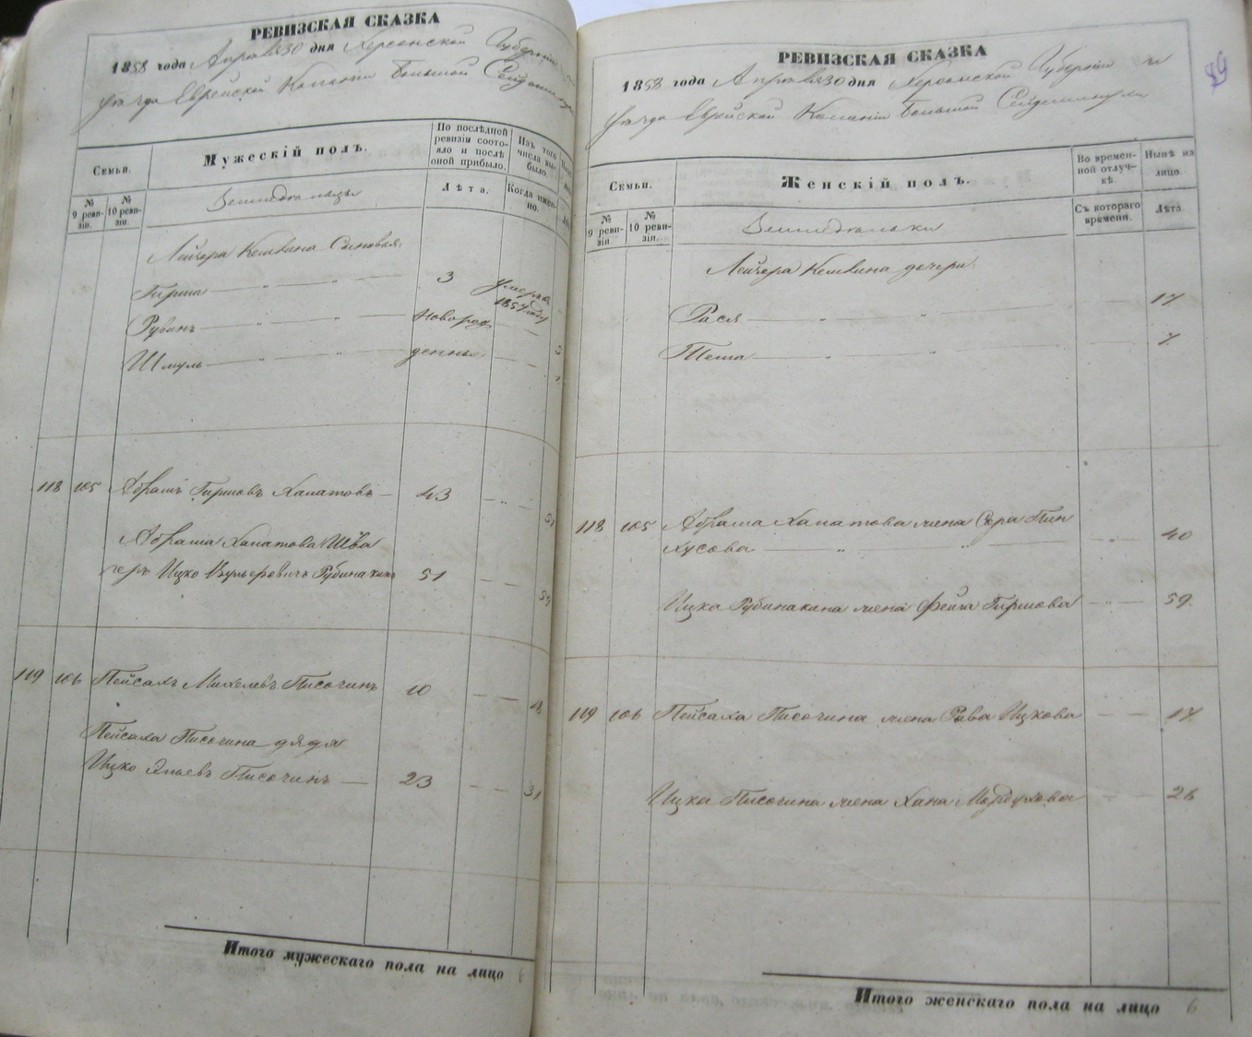 РЕВИЗСКАЯ СКАЗКА
1858 года Апреля 30 дня Херсонской Губерніи
уезда Еврейской Колоніи Большой
Семьи.
Мужескій полъ.
По послѣдней ревизіи состояло и послѣ оной прибыло.
Изъ того числа выбыло.
№ 9 ревизіи.
№ 10 ревизіи.
Лѣта.
Когда именно.
Земледельцы
Лейзера Сыновья
Гирша — " — " — 3 Умеръ 1857 году
Рубинъ — " — " — новорож
Шмуль — " — " — денные
118 105 Абрамъ Гиршовъ Хапатовъ — 43 — " —
51
Абрама Хапатова Шва
геръ Ицко 51 — —
59
119 106 Пейсахъ Михелевъ Писочинъ 10 — —
18
Пейсаха Писочина дядя
Ицко Писочинъ — 23 — —
31
Итого мужескаго пола на лицо 6
РЕВИЗСКАЯ СКАЗКА
89
1858 года Апреля 30 дня Херсонской Губерніи и
уезда Еврейской Колоніи Большой
Семьи.
Женскій полъ.
Во временной отлучкѣ.
Нынѣ на лицо.
№ 9 ревизіи.
№ 10 ревизіи.
Съ котораго времени.
Лѣта.
Земледельки
Лейзера дочери
Рася — " — " — 17
Песя — " — " — 7
118 105 Абрама Хапатова жена Сура Пин
хусова — " — " — — " — 40
Ицка жена Фейга Гиршова — " — 59
119 106 Пейсаха Писочина жена Ицкова — — 17
Ицка Писочина жена Хана Мордухова — — 26
Итого женскаго пола на лицо 6